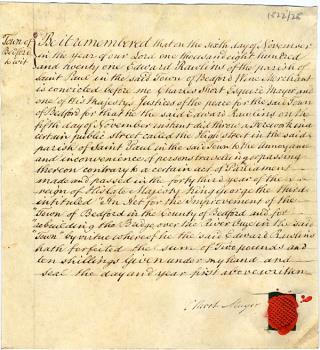 1522/26
Town of
Bedford
to wit
Be it remembered that on the sixth day of November
in the year of our Lord one thousand eight hundred
and twenty one Edward Rawlins of the parish of
Saint Paul in the said Town of Bedford Wine Merchant
is convicted before me Charles Short Esquire Mayor and
one of His Majestys Justices of the peace for the said Town
of Bedford for that he the said Edward Rawlins on the
fifth day of November instant did throw a Firework in a
certain public Street called the High Street in the said
parish of Saint Paul in the said Town to the annoyance
and inconvenience of persons travelling or passing
thereon contrary to a certain act of Parliament
made and passed in the forty third year of the
reign of His late Majesty King George the third
intituled "An Act for the Improvement of the
Town of Bedford in the County of Bedford and for
rebuilding the Bridge over the River Ouze in the said
Town" by virtue whereof the said Edward Rawlins
hath forfeited the sum of Two pounds and
ten shillings Given under my hand and
seal the day and year first above written
Short Mayor